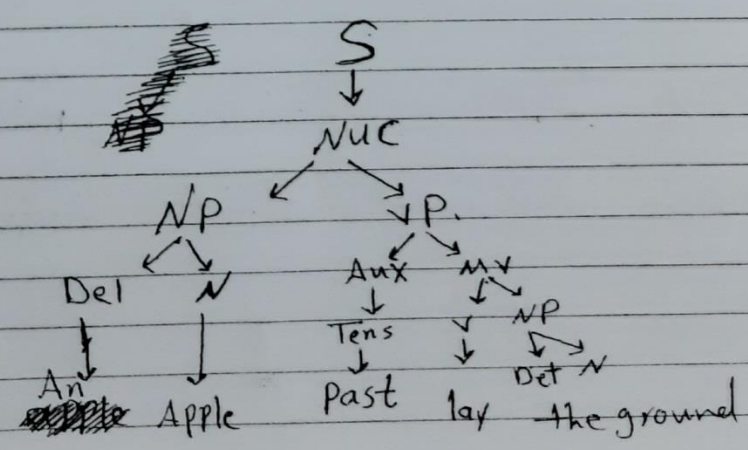 S
NUC
NP VP.
Del N Aux MV
Tens V NP
Det N
An Apple Past lay the ground